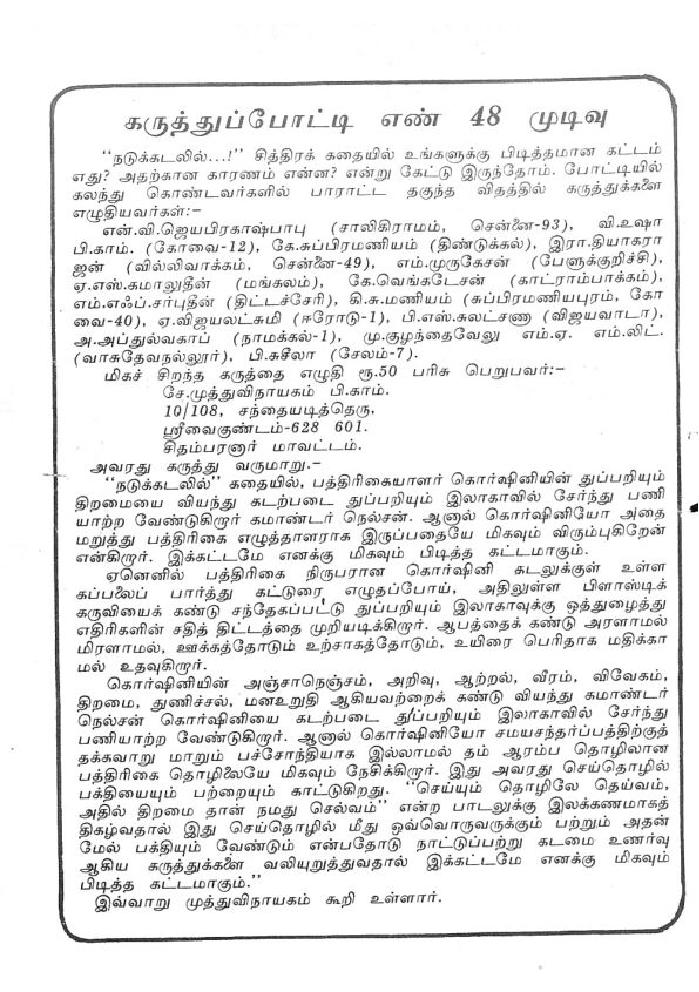 கருத்துப்போட்டி எண் 48 முடிவு
"நடுக்கடலில்...!" சித்திரக் கதையில் உங்களுக்கு பிடித்தமான கட்டம்
எது? அதற்கான காரணம் என்ன? என்று கேட்டு இருந்தோம். போட்டியில்
கலந்து கொண்டவர்களில் பாராட்ட தகுந்த விதத்தில் கருத்துக்களை
எழுதியவர்கள்:—
என்.வி.ஜெயபிரகாஷ்பாபு (சாலிகிராமம், சென்னை-93), வி.உஷா
பி.காம். (கோவை-12), கே.சுப்பிரமணியம் (திண்டுக்கல்), இரா.தியாகரா
ஜன் (வில்லிவாக்கம், சென்னை-49), எம்.முருகேசன் (பேளுக்குறிச்சி),
ஏ.எஸ்.கமாலுதீன் (மங்கலம்), கே.வெங்கடேசன் (காட்ராம்பாக்கம்),
எம்.எஃப்.சர்புதீன் (திட்டச்சேரி), கி.சு.மணியம் (சுப்பிரமணியபுரம், கோ
வை-40), ஏ.விஜயலட்சுமி (ஈரோடு-1), பி.எஸ்.சுலட்சணா (விஜயவாடா),
அ.அப்துல்வகாப் (நாமக்கல்-1), மு.குழந்தைவேலு எம்.ஏ. எம்.லிட்.
(வாசுதேவநல்லூர்), பி.சுசீலா (சேலம்-7).
மிகச் சிறந்த கருத்தை எழுதி ரூ.50 பரிசு பெறுபவர்:—
சே.முத்துவிநாயகம் பி.காம்.
10/108, சந்தையடித்தெரு,
ஸ்ரீவைகுண்டம்-628 601.
சிதம்பரனார் மாவட்டம்.
அவரது கருத்து வருமாறு.—
"நடுக்கடலில்" கதையில், பத்திரிகையாளர் கொர்ஷினியின் துப்பறியும்
திறமையை வியந்து கடற்படை துப்பறியும் இலாகாவில் சேர்ந்து பணி
யாற்ற வேண்டுகிறார் கமாண்டர் நெல்சன். ஆனால் கொர்ஷினியோ அதை
மறுத்து பத்திரிகை எழுத்தாளராக இருப்பதையே மிகவும் விரும்புகிறேன்
என்கிறார். இக்கட்டமே எனக்கு மிகவும் பிடித்த கட்டமாகும்.
ஏனெனில் பத்திரிகை நிருபரான கொர்ஷினி கடலுக்குள் உள்ள
கப்பலைப் பார்த்து கட்டுரை எழுதப்போய், அதிலுள்ள பிளாஸ்டிக்
கருவியைக் கண்டு சந்தேகப்பட்டு துப்பறியும் இலாகாவுக்கு ஒத்துழைத்து
எதிரிகளின் சதித் திட்டத்தை முறியடிக்கிறார். ஆபத்தைக் கண்டு அரளாமல்
மிரளாமல், ஊக்கத்தோடும் உற்சாகத்தோடும், உயிரை பெரிதாக மதிக்கா
மல் உதவுகிறார்.
கொர்ஷினியின் அஞ்சாநெஞ்சம், அறிவு, ஆற்றல், வீரம், விவேகம்,
திறமை, துணிச்சல், மனஉறுதி ஆகியவற்றைக் கண்டு வியந்து கமாண்டர்
நெல்சன் கொர்ஷினியை கடற்படை துப்பறியும் இலாகாவில் சேர்ந்து
பணியாற்ற வேண்டுகிறார். ஆனால் கொர்ஷினியோ சமயசந்தர்ப்பத்திற்குத்
தக்கவாறு மாறும் பச்சோந்தியாக இல்லாமல் தம் ஆரம்ப தொழிலான
பத்திரிகை தொழிலையே மிகவும் நேசிக்கிறார். இது அவரது செய்தொழில்
பக்தியையும் பற்றையும் காட்டுகிறது. "செய்யும் தொழிலே தெய்வம்,
அதில் திறமை தான் நமது செல்வம்" என்ற பாடலுக்கு இலக்கணமாகத்
திகழ்வதால் இது செய்தொழில் மீது ஒவ்வொருவருக்கும் பற்றும் அதன்
மேல் பக்தியும் வேண்டும் என்பதோடு நாட்டுப்பற்று கடமை உணர்வு
ஆகிய கருத்துக்களை வலியுறுத்துவதால் இக்கட்டமே எனக்கு மிகவும்
பிடித்த கட்டமாகும்."
இவ்வாறு முத்துவிநாயகம் கூறி உள்ளார்.